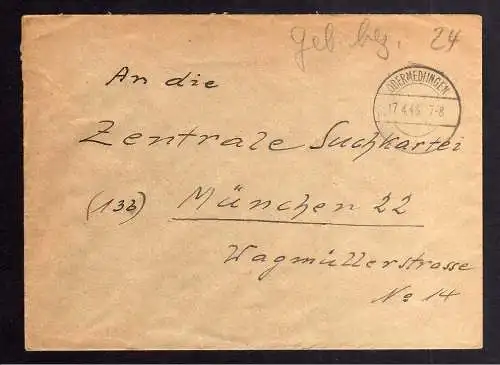 Geb. bez. 24
OBERMEDLINGEN
17.4.46 7-8
An die
Zentrale Suchkartei
(13b) München 22
Wagmüllerstrasse
No 14